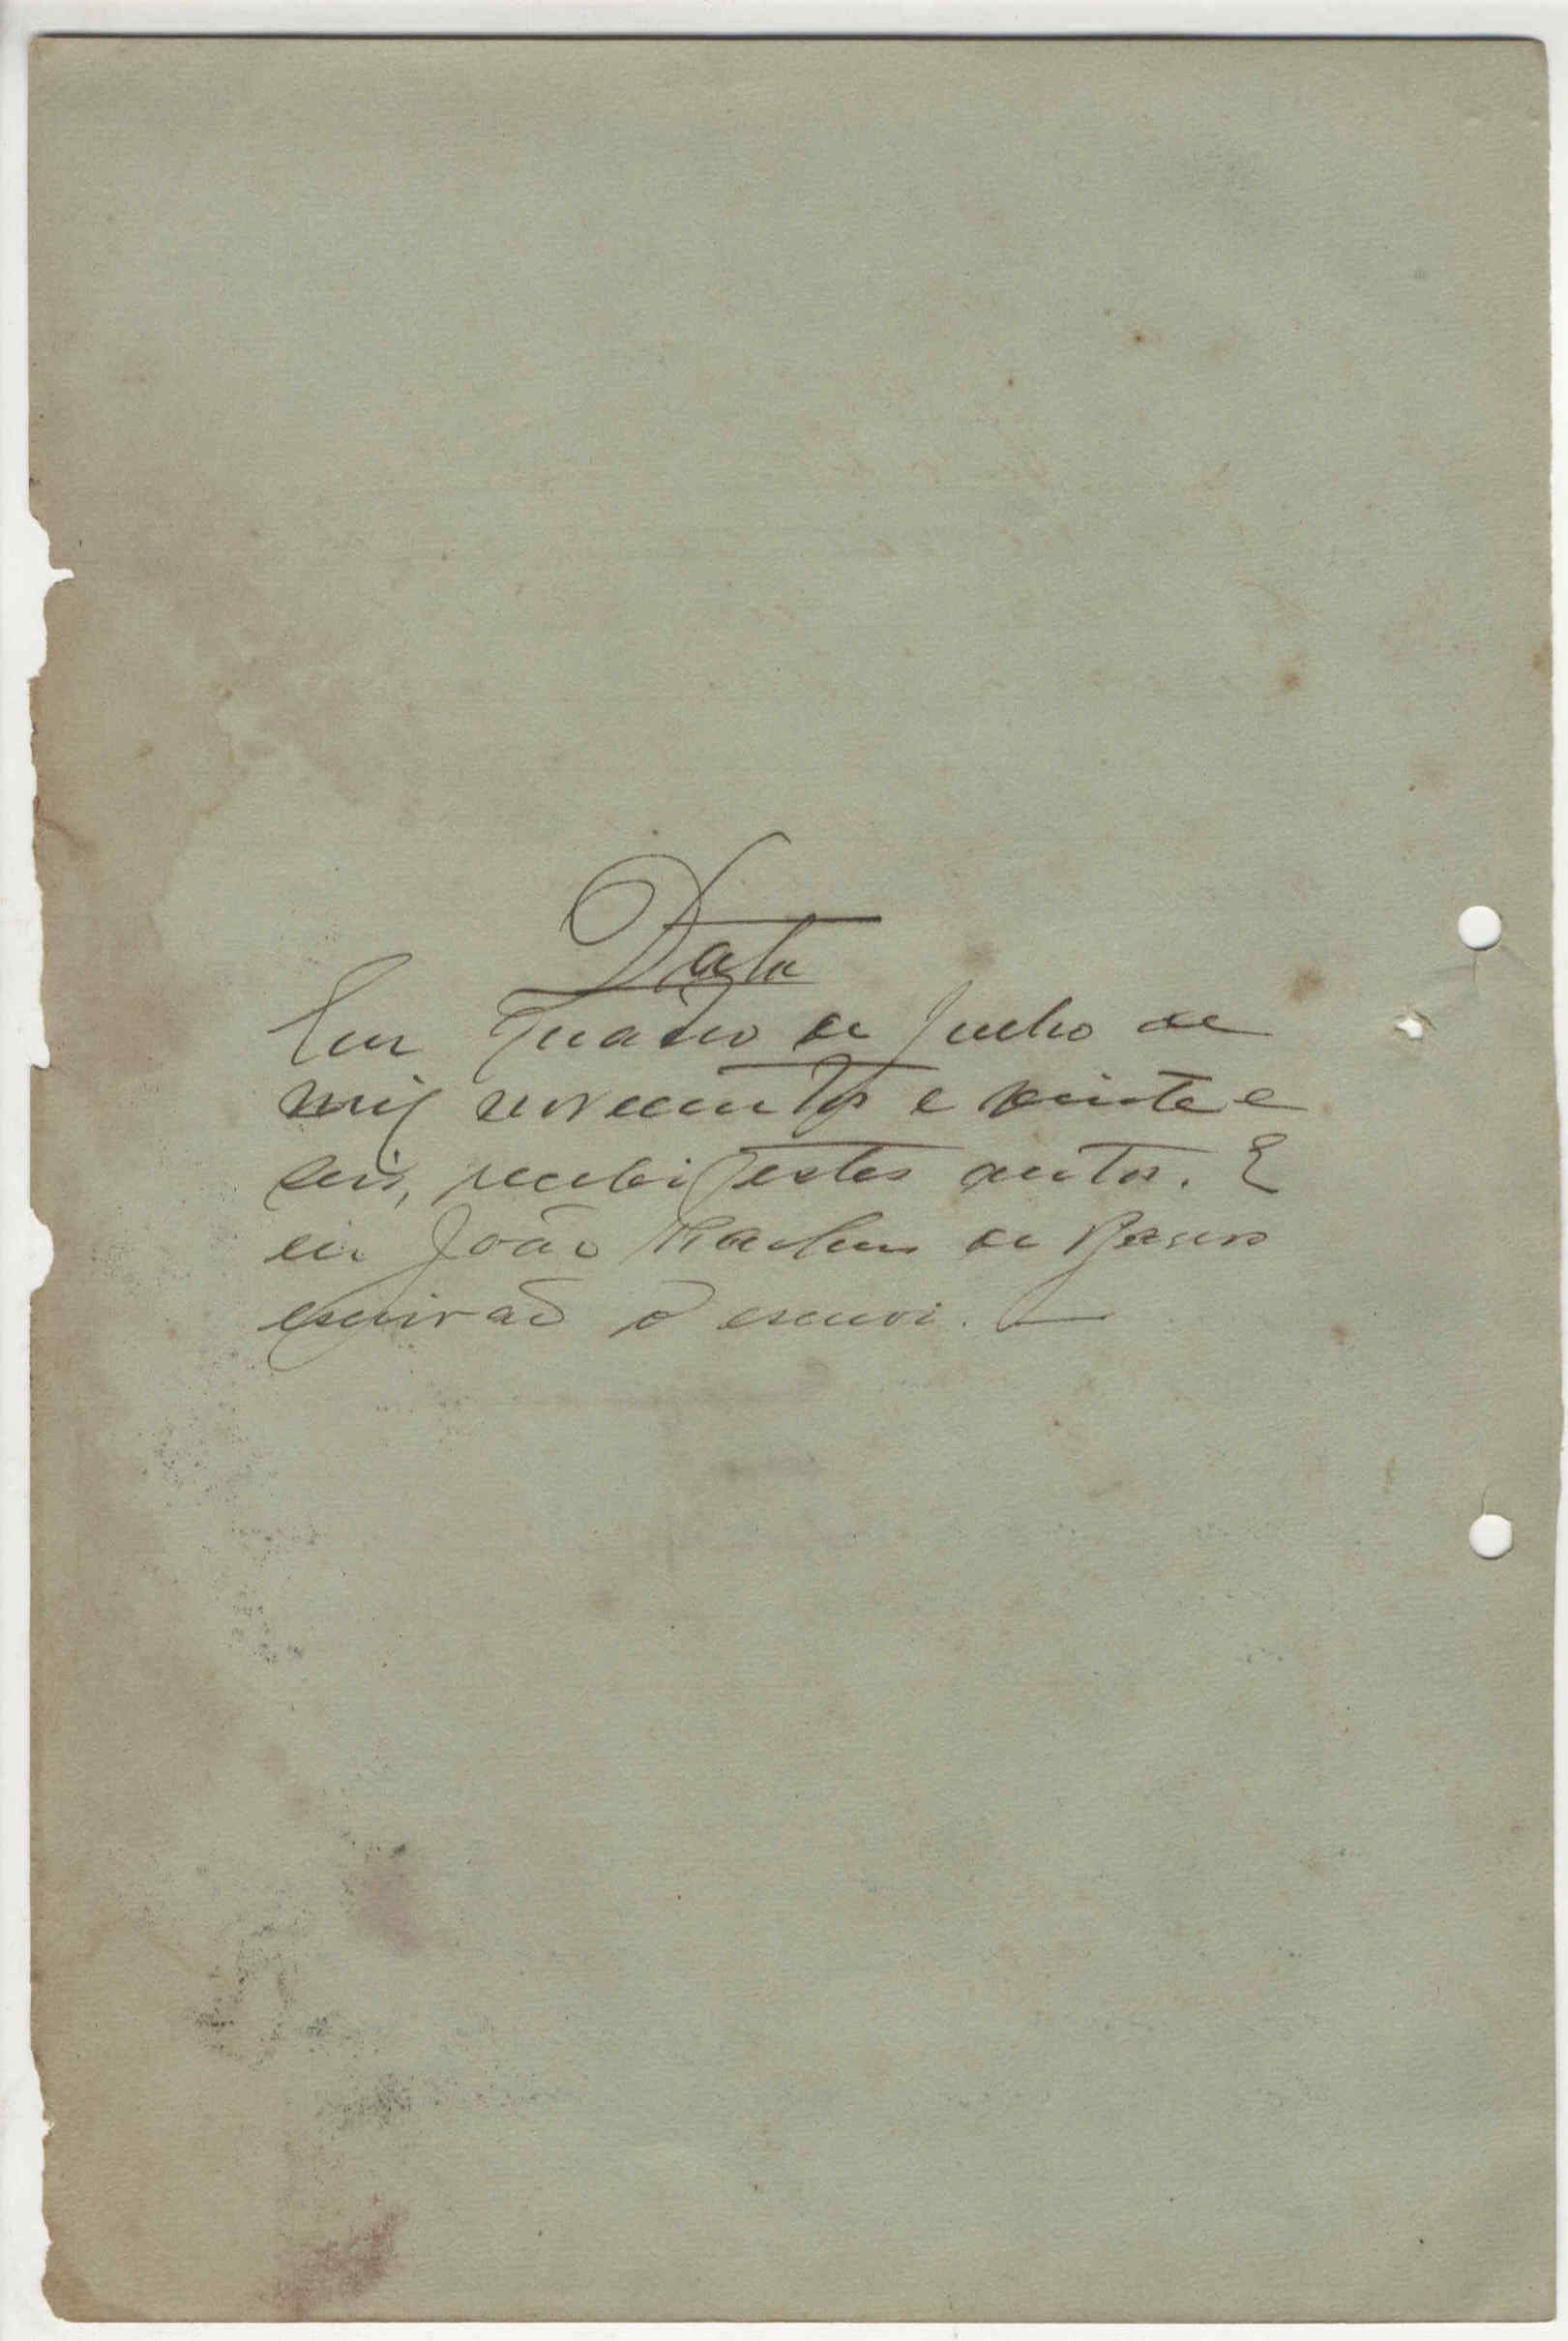 Data
Em quatro de Julho de
mil novecentos e vinte e
seis, recebi estes autos. E
eu João de
escrivão o escrevi.